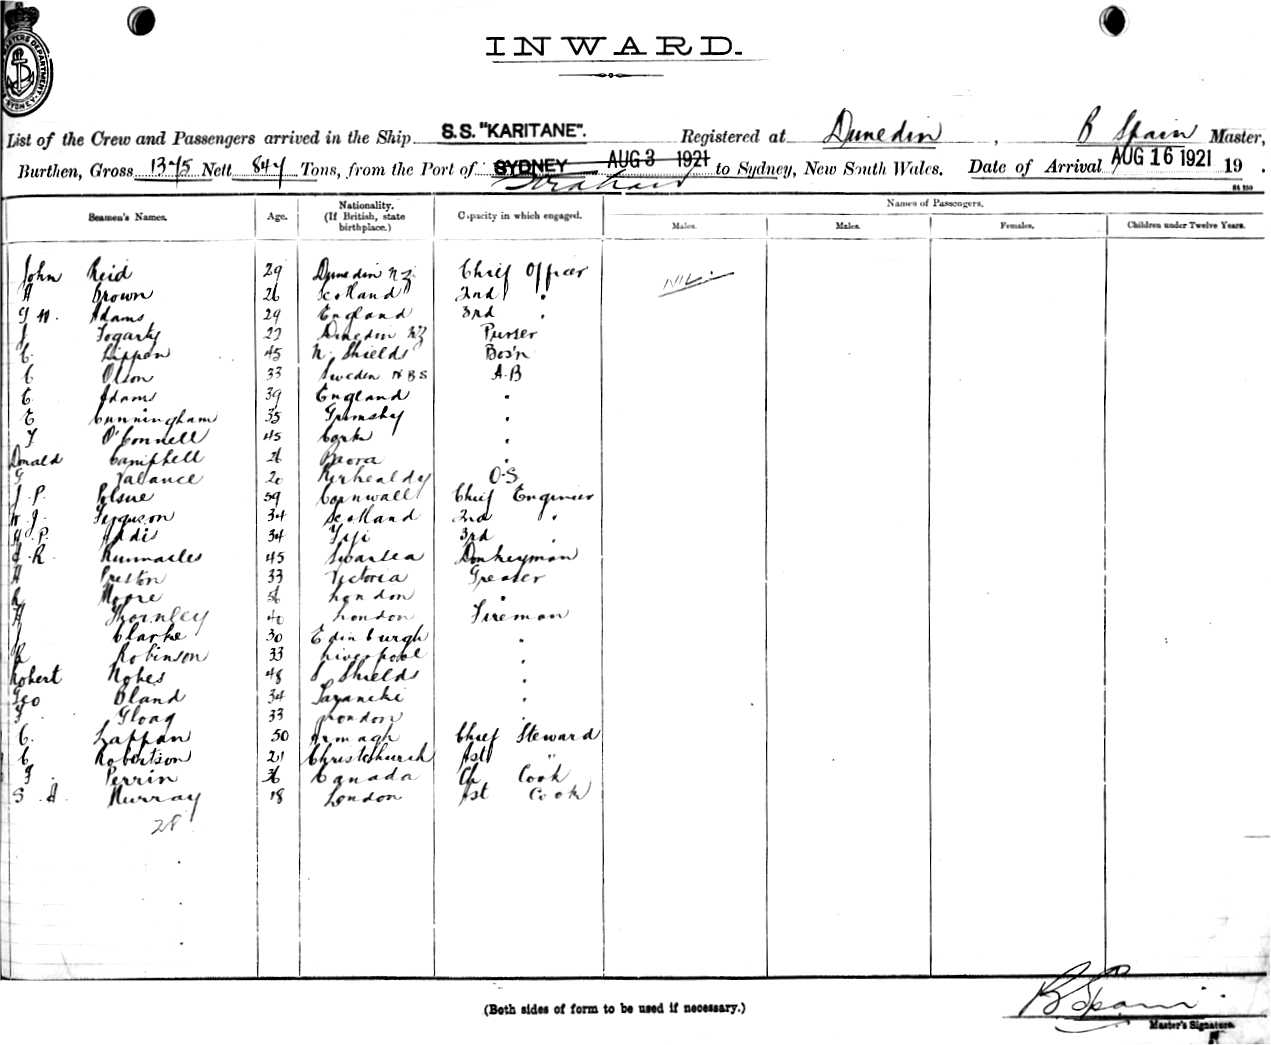 INWARD.
List of the Crew and Passengers arrived in the Ship S.S. "KARITANE". Registered at Dunedin, B Spain Master,
Burthen, Gross 1375 Nett 847 Tons, from the Port of SYDNEY AUG 3 1921 Strahan to Sydney, New South Wales. Date of Arrival AUG 16 1921 19 .
Seamen's Names. Age. Nationality. (If British, state birthplace.) Capacity in which engaged. Names of Passengers.
Males. Males. Females. Children under Twelve Years.
John Reid 29 Dunedin NZ Chief Officer Nil
A Brown 26 Scotland 2nd "
G W. Adams 29 England 3rd "
J Fogarty 27 Dunedin NZ Purser
C. Lippen 45 N. Shields Bos'n
C Olson 33 Sweden NBS A.B
C Adams 39 England "
E Cunningham 35 Grimsby "
T O'Connell 45 Cork "
Donald Campbell 26 "
G Valance 20 Kirkcaldy O.S
J. P. Pelsue 59 Cornwall Chief Engineer
W. J. Ferguson 34 Scotland 2nd "
A. P. Addis 34 Fiji 3rd "
J. R. Runnacles 45 Swansea Donkeyman
A Preston 33 Victoria Greaser
R Moore 56 London "
A Thornley 40 London Fireman
J Clarke 30 Edinburgh "
R Robinson 33 Liverpool "
Robert Nokes 48 S Shields "
Geo Bland 34 Taranaki "
F. Gloag 33 London "
C. Lappan 50 Armagh Chief Steward
C Robertson 21 Christchurch Ast "
F. Perrin 36 Canada Ch Cook
S. A. Murray 18 London Ast Cook
28
(Both sides of form to be used if necessary.)
B Spain
Master's Signature.